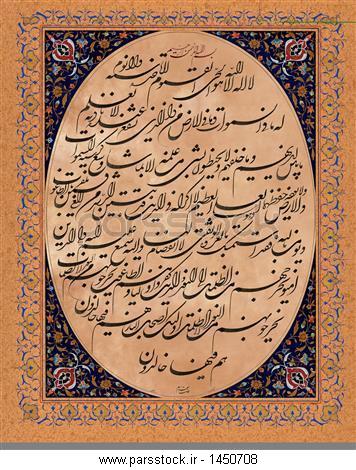 بسم الله الرحمن الرحیم
الله لا اله الا هو الحی القیوم لا تأخذه سنة ولا نوم
له ما فی السموات و ما فی الارض من ذا الذی یشفع عنده الا باذنه یعلم
ما بین ایدیهم و ما خلفهم ولا یحیطون بشیء من علمه الا بما شاء وسع کرسیه السموات
والارض ولا یؤده حفظهما و هو العلی العظیم لا اکراه فی الدین قد تبین الرشد من الغی فمن یکفر بالطاغوت
و یؤمن بالله فقد استمسک بالعروة الوثقی لا انفصام لها والله سمیع علیم الله ولی الذین
آمنوا یخرجهم من الظلمات الی النور والذین کفروا اولیاؤهم الطاغوت
یخرجونهم من النور الی الظلمات اولئک اصحاب النار
هم فیها خالدون
www.parsstock.ir - 1450708